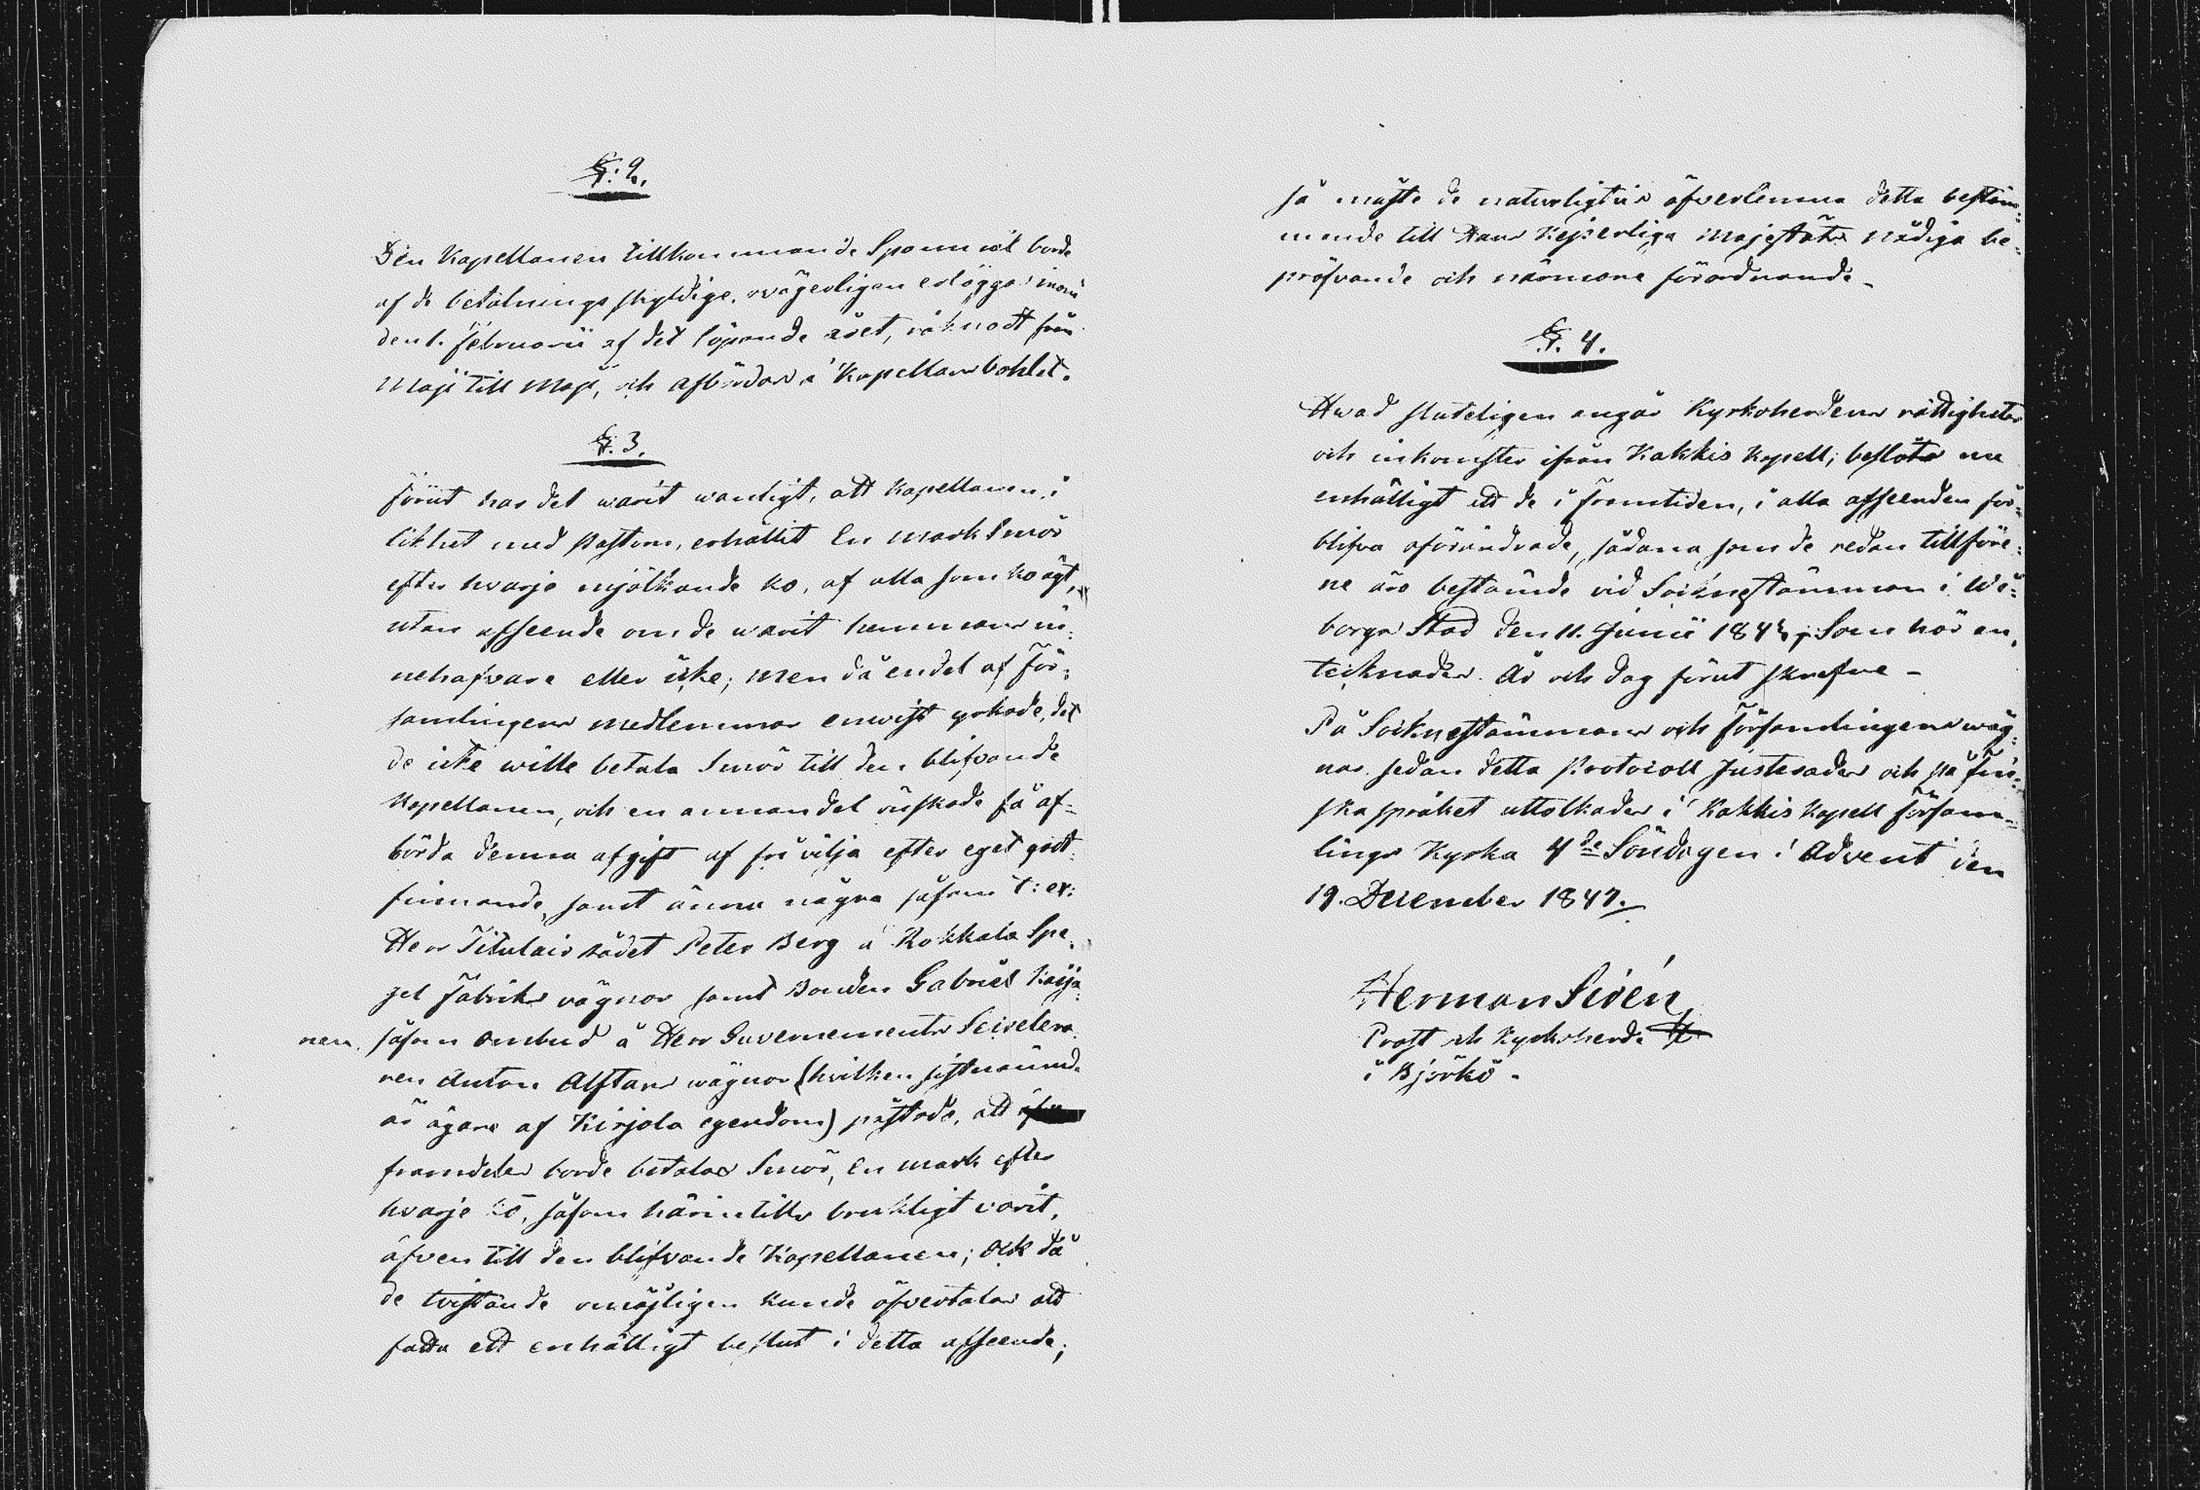 §. 2.
Den Kapellanen tillkommande Spannmål borde
af de betalningsskyldige, ovägerligen erläggas inom
den 1. Februarii af det löpande året, räknadt från
Maji till Maji, och afbördas å Kapellansbohlet.
§. 3.
Förut har det warit wanligt, att Kapellanen, i
likhet med Pastorn, erhållit En mark Smör
efter hvarje mjölkande ko, af alla som ko ägt,
utan afseende om de warit hemmans in=
nehafvare eller icke; men då endel af För=
samlingens medlemmar enwist yrkade, det
de icke wille betala Smör till den blifvande
Kapellanen, och en annan del önskade få af=
börda denna afgift af fri vilja efter eget godt=
finnande, samt ännu några såsom t: ex:
Herr Titulairrådet Peter Berg å Rokkala Spe=
gel Fabriks vägnar samt Bonden Gabriel Kaija=
nen, såsom ombud å Herr Guvernements Secretera=
ren Anton Alftans wägnar (hvilken sistnämnde
är ägare af Kirjola egendom) påstodo, att
framdeles borde betalas Smör, En mark efter
hvarje ko, såsom härintills brukligt varit,
äfven till den blifvande Kapellanen; Och då
de tvistande omöjligen kunde öfvertalas att
fatta ett enhälligt beslut i detta afseende;
så måste de naturligtvis öfverlemna detta bestäm=
mande till Hans Kejserliga Majestäts nådiga be=
pröfvande och närmare förordnande.
§. 4.
Hwad sluteligen angår Kyrkoherdens rättigheter
och inkomster ifrån Kakkis Kapell; beslöts nu
enhälligt att de i framtiden, i alla afseenden för=
blifva oförändrade, sådana som de redan tillföre=
ne äro bestämde vid Socknestämman i Wi=
borgs Stad den 11. Junii 184 Som här an=
tecknades. År och dag förut skrefne –
På Socknestämmans och Församlingens wäg=
nar. sedan detta Protocoll Justerades och på fin=
ska språket uttolkades i Kakkis Kapell Försam=
lings Kyrka 4de Söndagen i Advent den
19. December 1847.
Herman Sirén
Prost och Kyrkoherde
i Björkö.